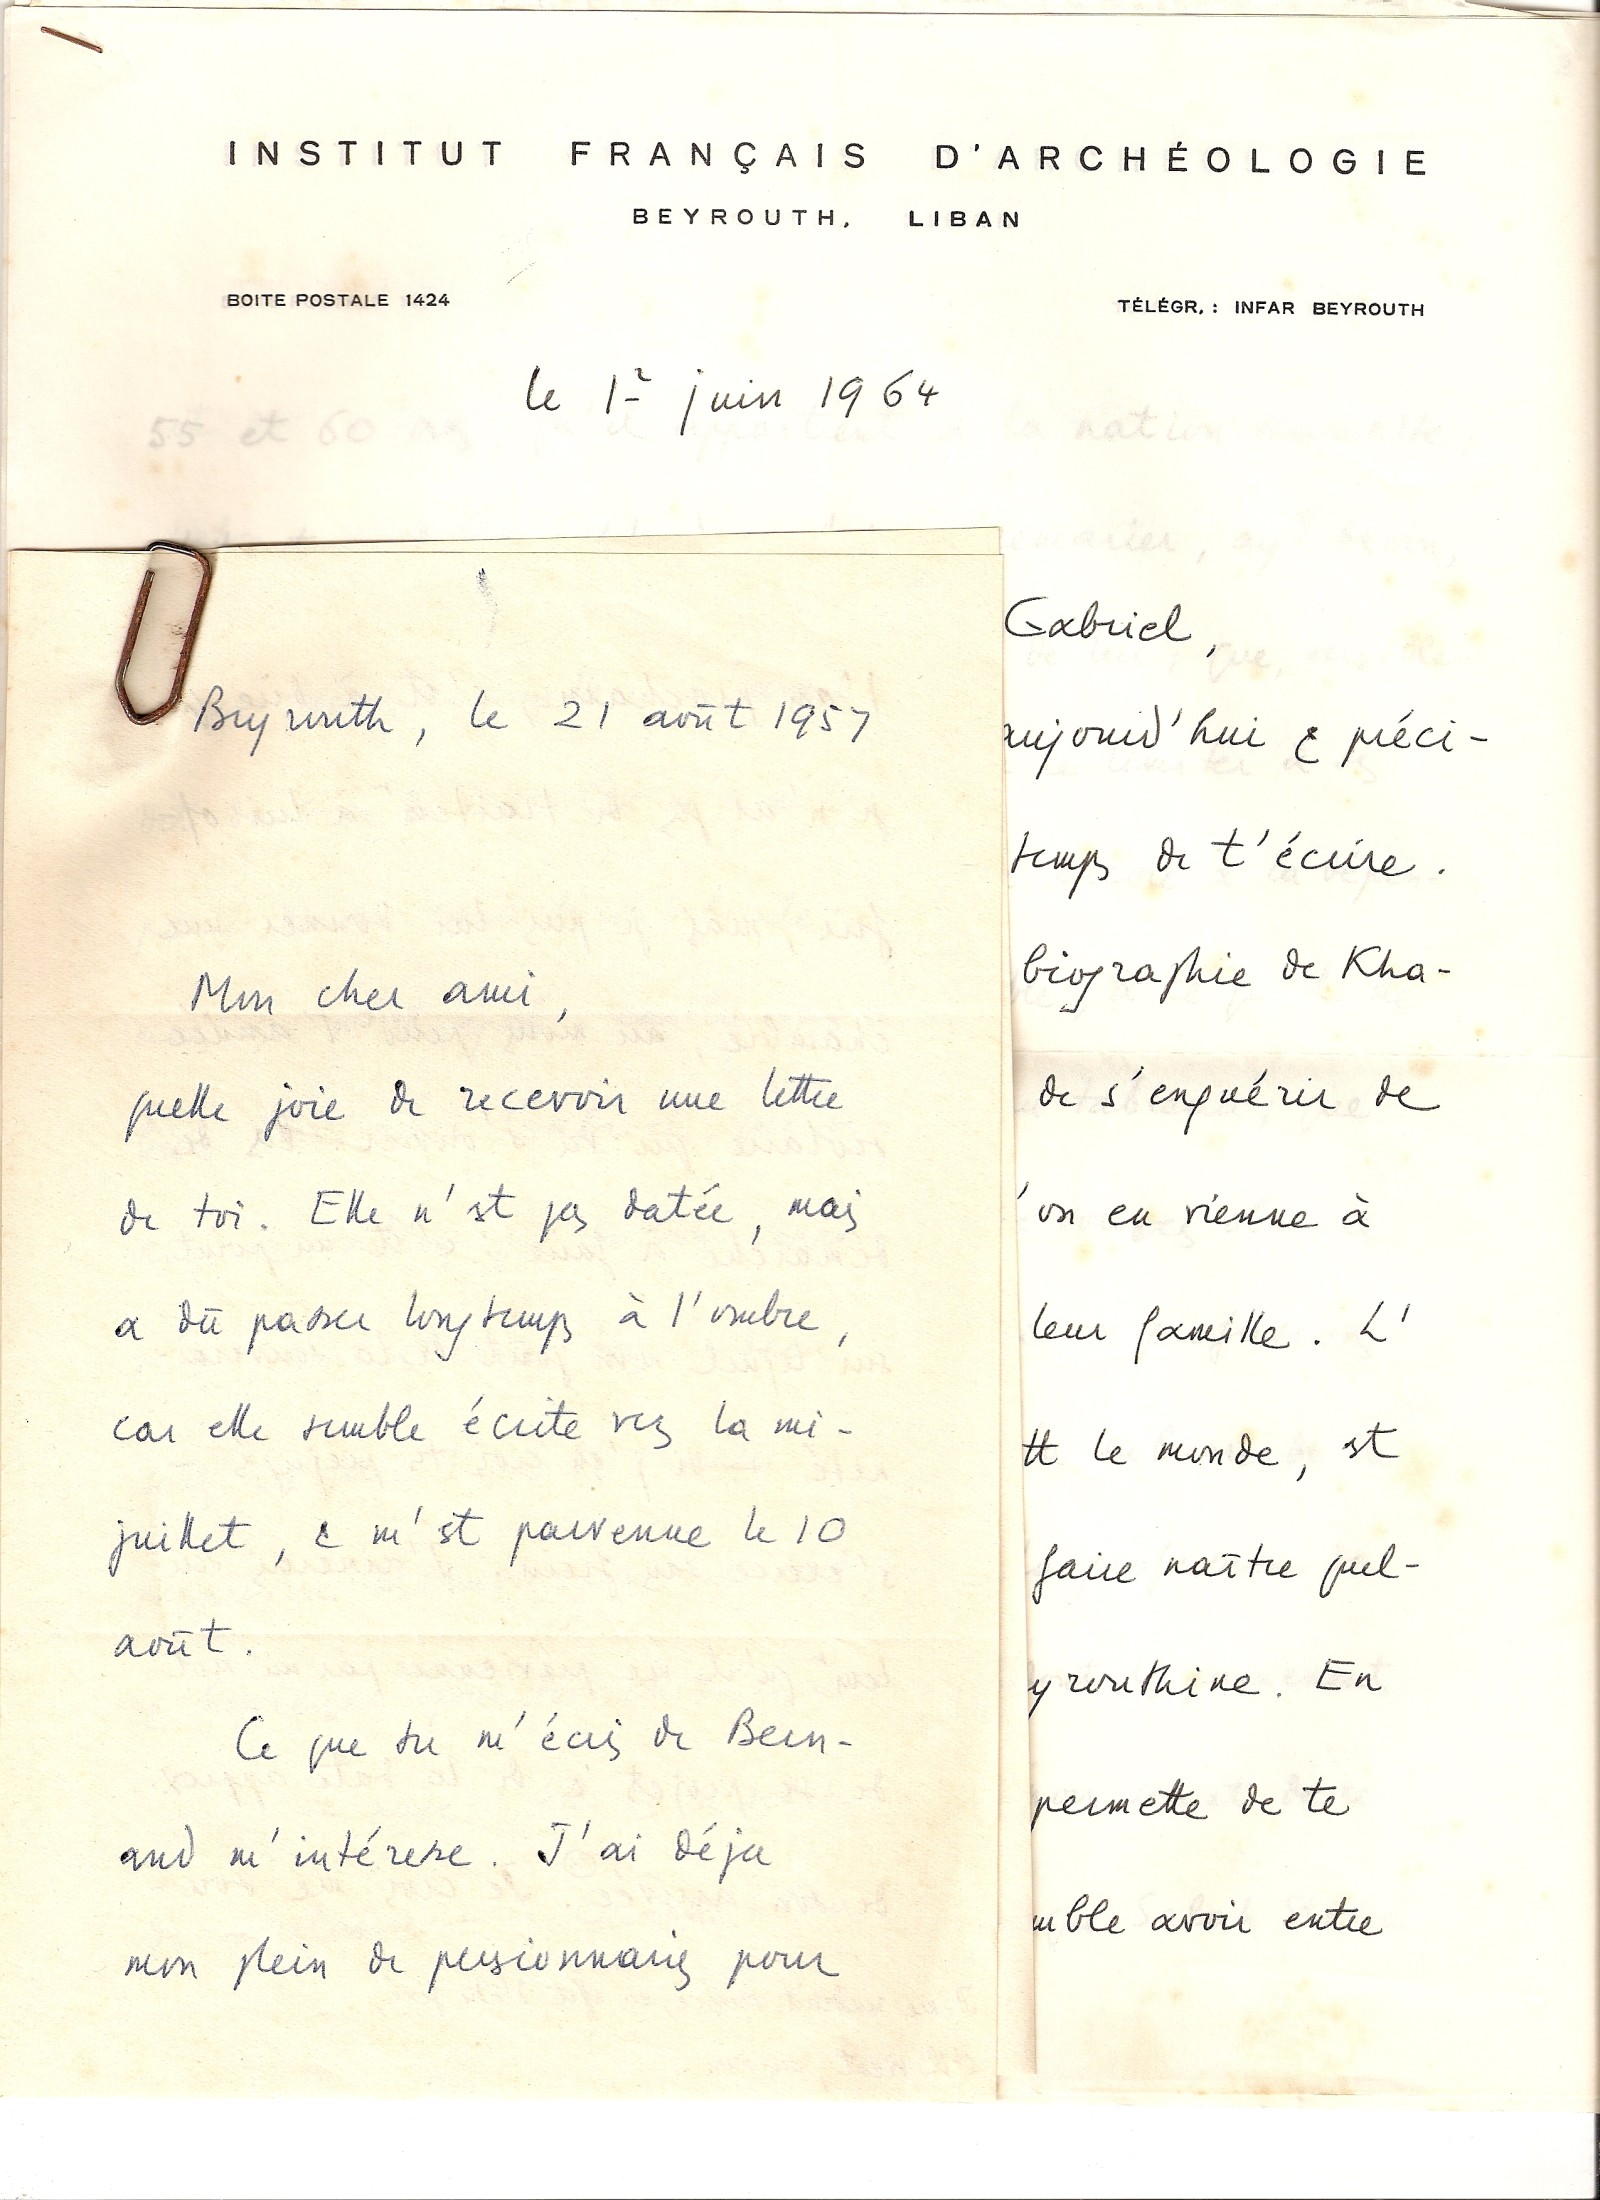 INSTITUT FRANÇAIS D'ARCHÉOLOGIE
BEYROUTH, LIBAN
BOITE POSTALE 1424
TÉLÉGR. : INFAR BEYROUTH
le 1r juin 1964
Gabriel,
aujourd'hui & préci-
temps de t'écrire.
biographie de Kha-
de s'enquérir de
'on en vienne à
leur famille. L'
tt le monde, st
faire naître quel-
yrouthine. En
permette de te
mble avoir entre
Beyrouth, le 21 août 1957
Mon cher ami,
quelle joie de recevoir une lettre
de toi. Elle n'st pas datée, mais
a dû passer longtemps à l'ombre,
car elle semble écrite vers la mi-
juillet, & m'st parvenue le 10
août.
Ce que tu m'écris de Bern-
and m'intéresse. J'ai déja
mon plein de pensionnaires pour